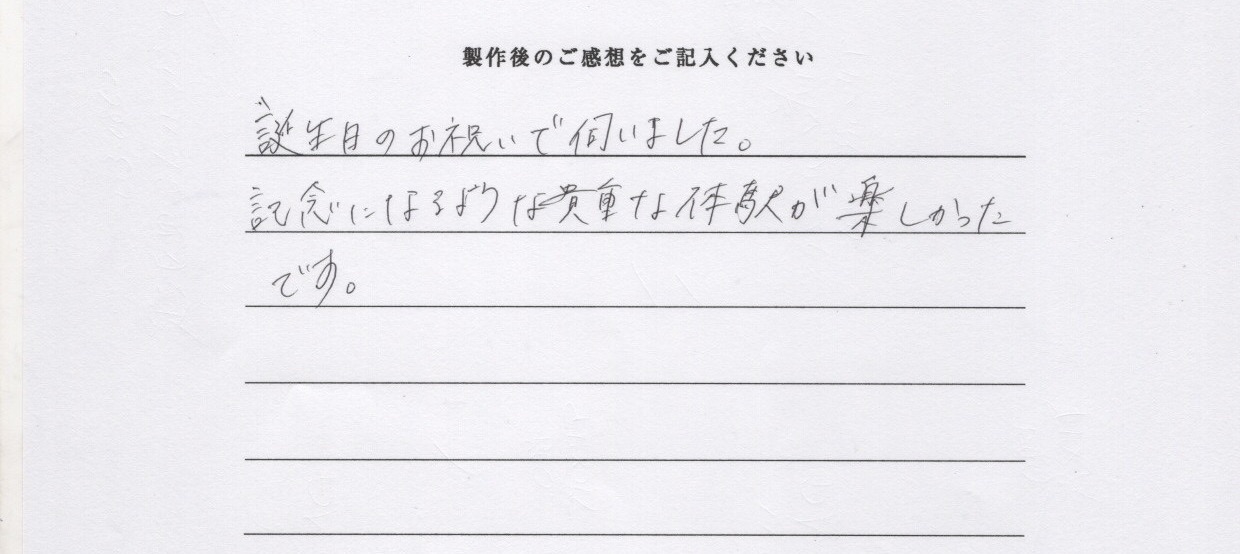 製作後のご感想をご記入ください
誕生日のお祝いで伺いました。
記念になるような貴重な体験が楽しかった
です。